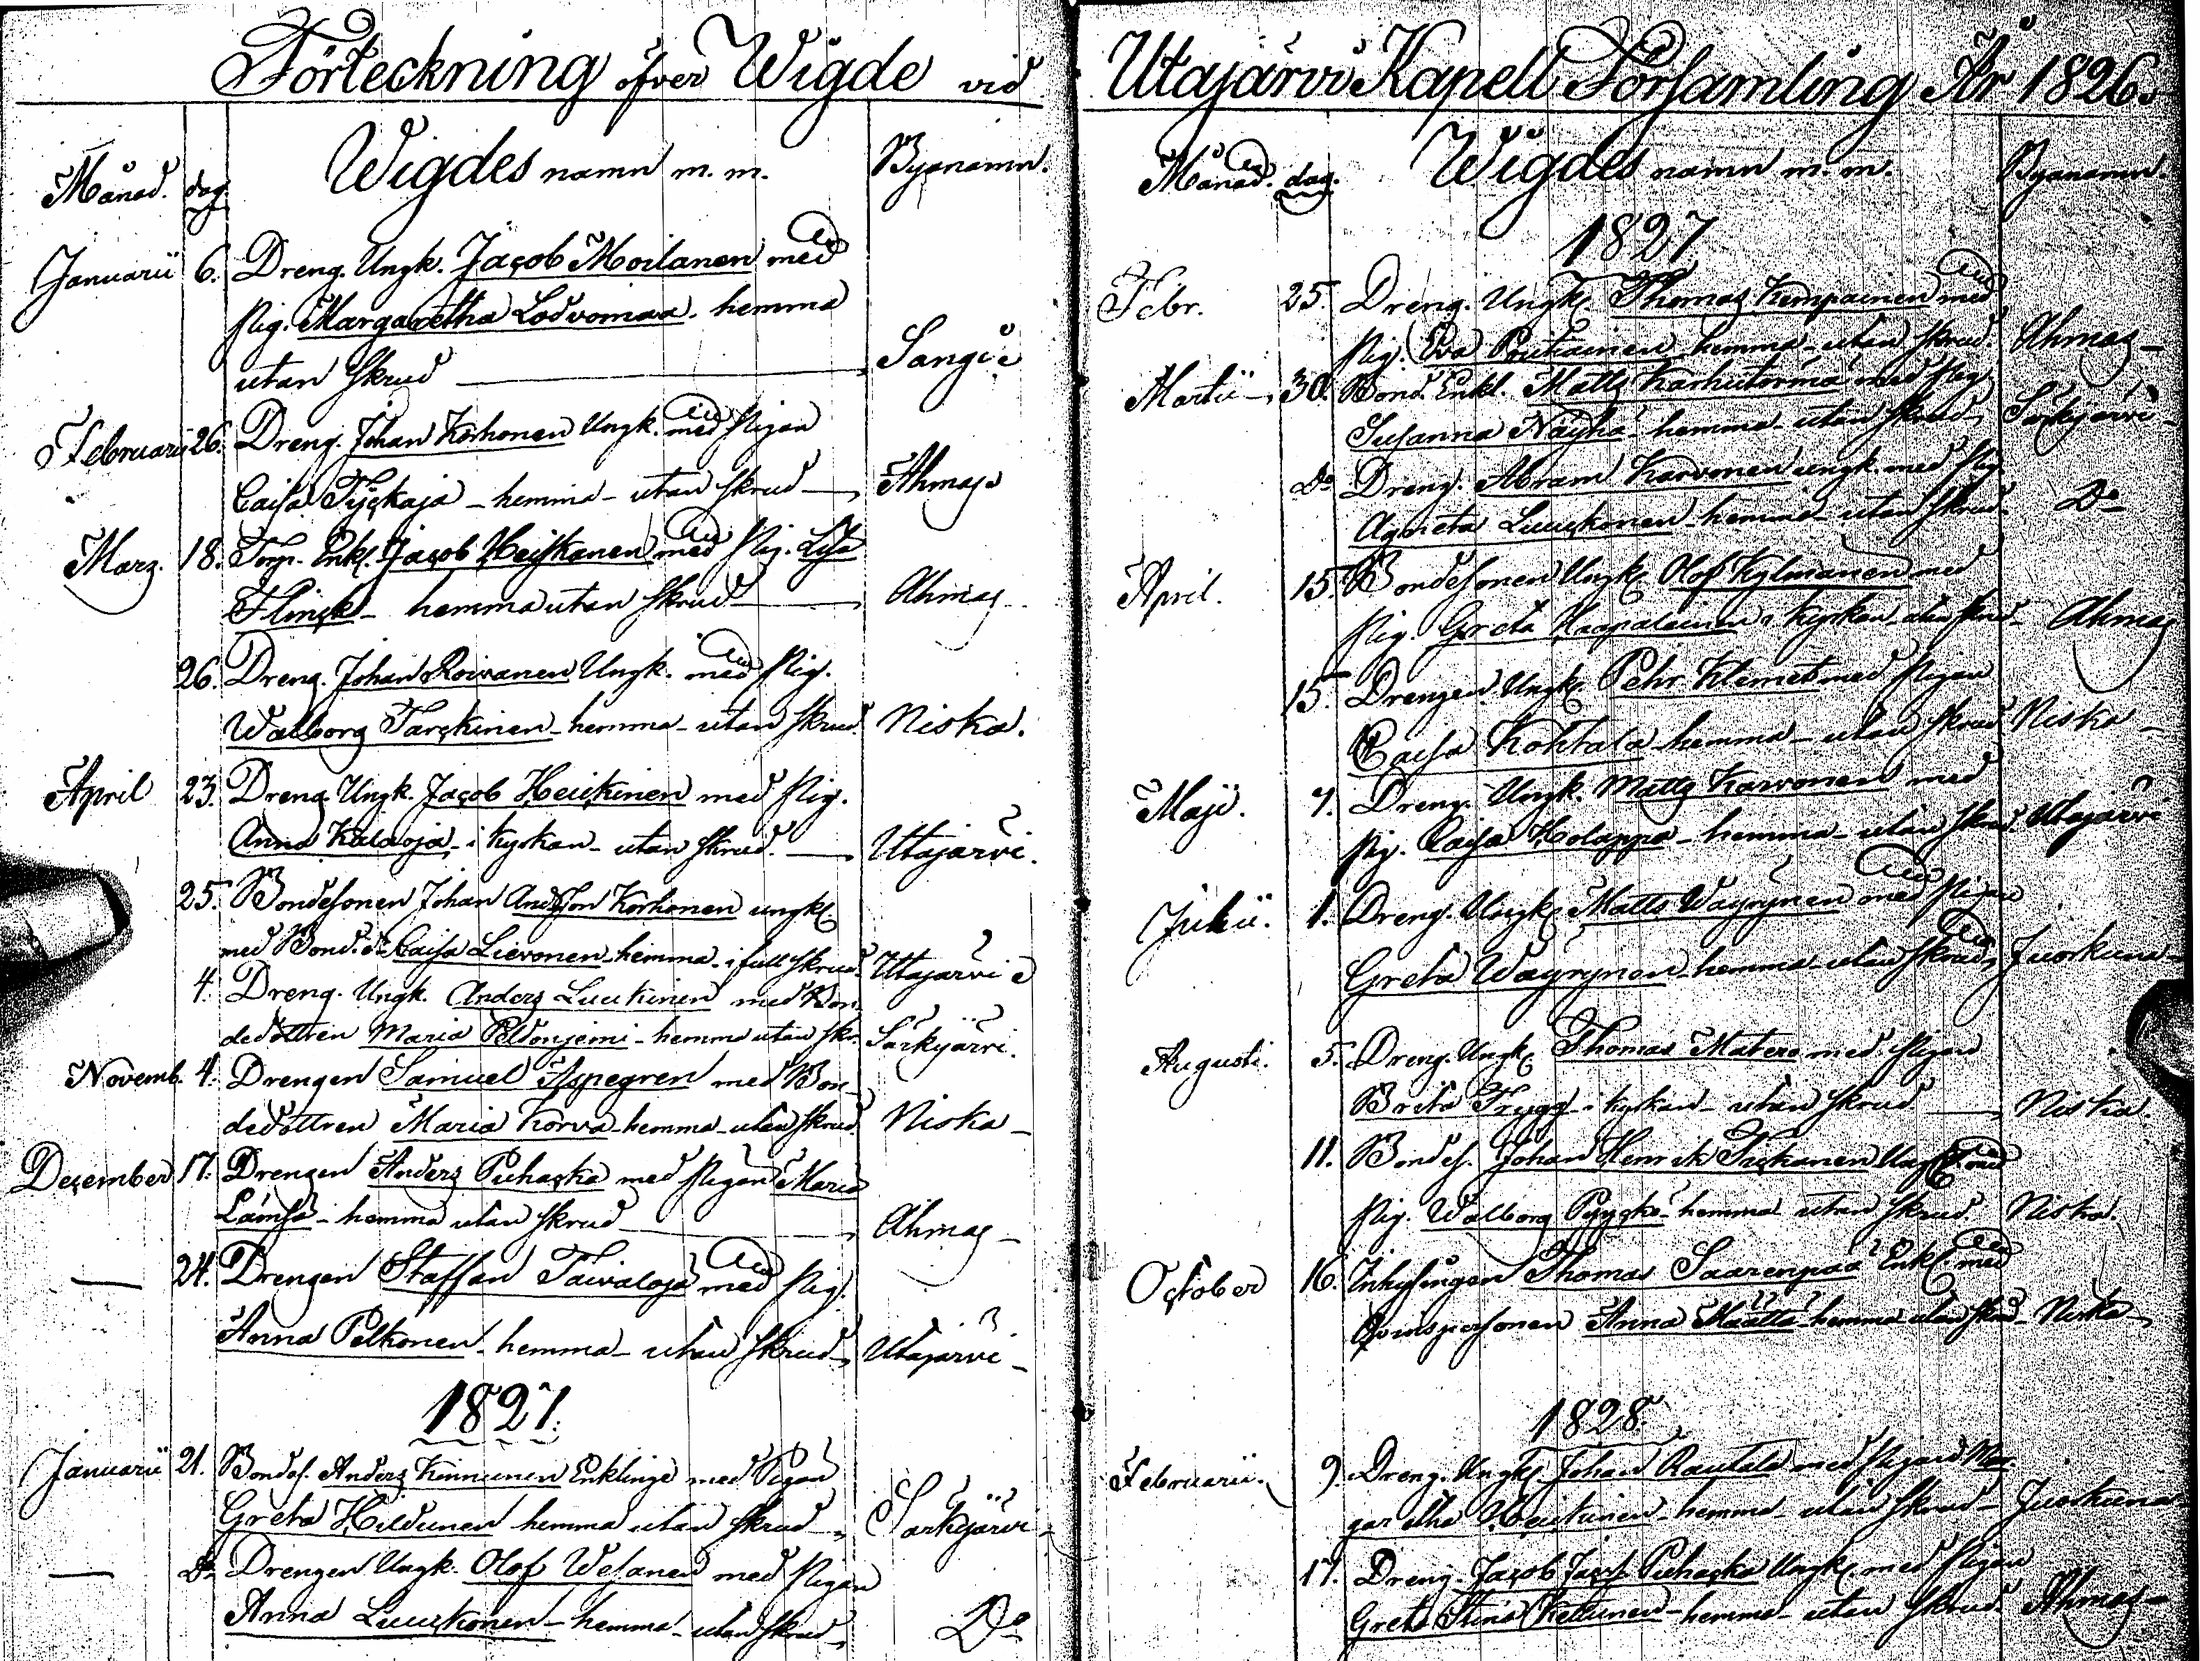 Förteckning öfver Wigde vid
Månad. dag. Wigdes namn m. m. Byanamn.
Januarii 6. Dreng. Ungk. Jacob Moilanen med
Pig. Margaretha Lodvomaa. hemma
utan Skrud — Sangi
Februarii 26. Dreng. Johan Korhonen Ungk. med Pigan
Caisa Tyckäjä - hemma - utan Skrud — Ahmas
Marz. 18. Torp. Enkl. Jacob Heiskanen med Pig. Lisa
Flinck - hemma utan Skrud — Ahmas
26. Dreng. Johan Roivanen Ungk. med Pig.
Walborg Tarckinen - hemma - utan Skrud. Niska.
April 23. Dreng Ungk. Jacob Heickinen med Pig.
Anna Kalaoja - i kyrkan - utan Skrud. — Utajärvi.
25. Bondesonen Johan Andsson Korhonen ungk.
med Bond. d. Caisa Lievonen - hemma - i full skrud. Utajärvi
4. Dreng. Ungk. Anders Luukinen med Bon
dedottren Maria Peldoniemi - hemma utan Skr. Särkijärvi.
Novemb. 4. Drengen Samuel Aspegren med Bon
dedottren Maria Korva - hemma - utan Skrud. Niska —
December 17. Drengen Anders Puhacka med Pigan Maria
Lämsä - hemma utan Skrud — Ahmas —
— 24. Drengen Staffan Taivaloja med Pig.
Anna Pelkonen - hemma - utan Skrud — Utajärvi —
1827.
Januarii 21. Bondes. Anders Kinnunen Enkling med Pigan
Greta Hildunen hemma utan Skrud — Särkijärvi —
— Do Drengen Ungk. Olof Wesanen med Pigan
Anna Luuckonen - hemma - utan Skrud — Do
Utajärvi Kapell Församling År 1826.
Månad. dag. Wigdes namn m. m. Byanamn.
1827
Febr. 25. Dreng. Ungk. Thomas Kempainen med
Pig. Eva Poutiainen hemma - utan Skrud. Ahmas —
Martii — 30. Bond. Enkl. Matts Karhutorma med Pig.
Susanna Näyhä - hemma - utan Skrud, Särkijärvi -
Do Dreng. Abram Karvonen ungk. med Pig.
Agneta Luuckonen - hemma - utan Skrud. Do
April. 15. Bondesonen Ungk. Olof Kylmänen med
Pig. Greta Haapalainen i kyrkan - utan Skrud — Ahmas
15. Drengen. Ungk. Pehr Klemet med Pigan
Caisa Kohtala hemma - utan Skrud Niska —
Maji. 7. Dreng. Ungk. Matts Karvonen med
Pig. Caisa Holappa - hemma - utan Skrud. Utajärvi
Julii. 1. Dreng. Ungk. Matts Wäyrynen med Pigan
Greta Wäyrynen - hemma - utan Skrud, Juorkuna —
Augusti. 5. Dreng. Ungk. Thomas Matero med Pigan
Brita Trygg - i kyrkan - utan Skrud — Niska
11. Bondes. Johan Henrik Tickanen Ungk. med
Pig. Walborg Pyyckö - hemma utan Skrud. Niska.
October 16. Inhysingen Thomas Saarenpää Enkl. med
Qvinspersonen Anna Määttä - hemma utan Skrud — Niska —
1828.
Februarii. 9. Dreng. Ungk. Johan Rautala med Pigan Mar
garetha Heickinen - hemma - utan Skrud — Juorkuna
17. Dreng. Jacob Jacs. Puhacka Ungk. med Pigan
Greta Stina Kettunen - hemma - utan Skrud. Ahmas —